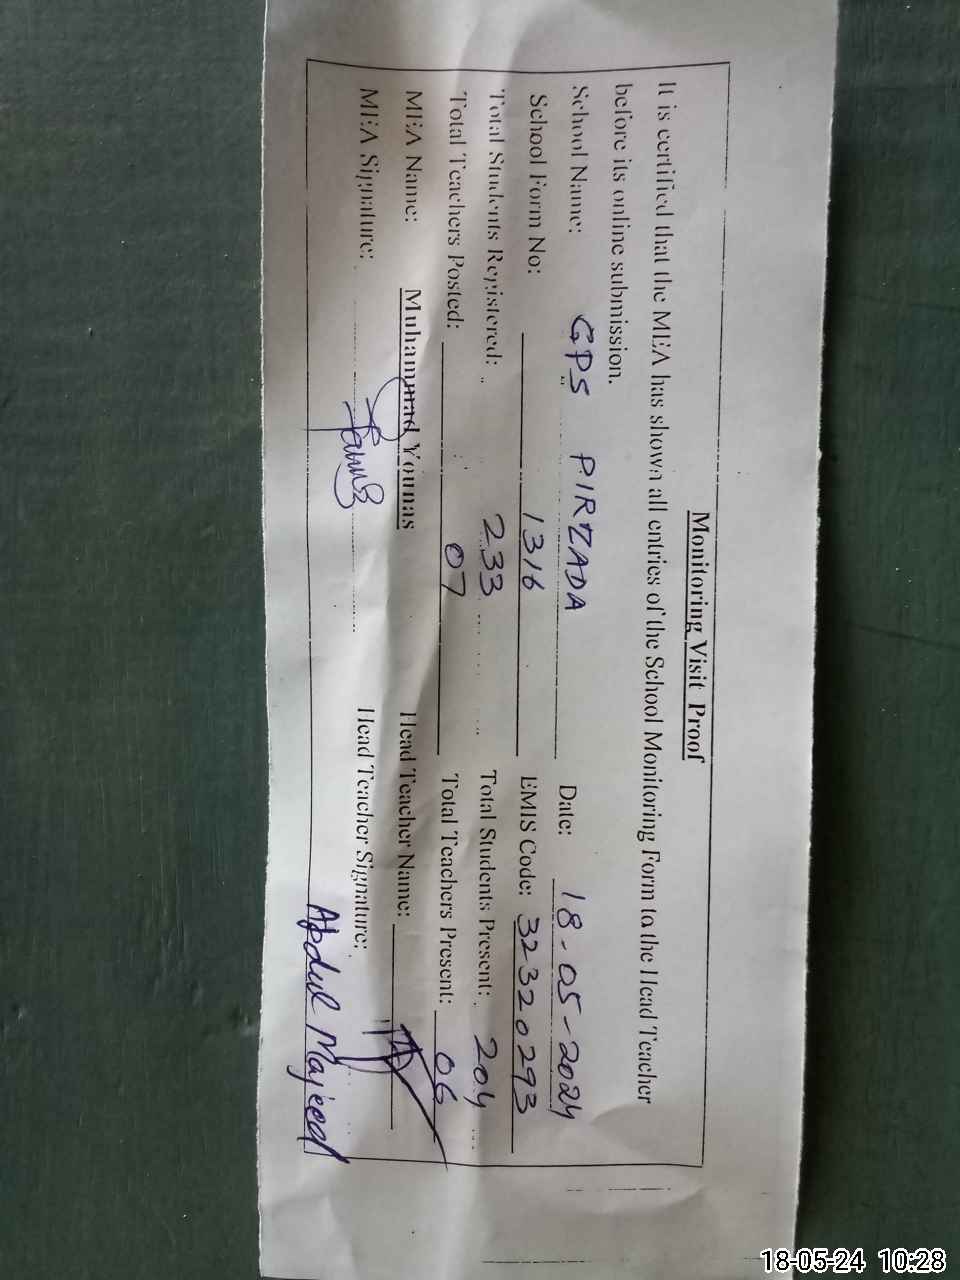 Monitoring Visit Proof
It is certified that the MEA has shown all entries of the School Monitoring Form to the Head Teacher
before its online submission.
School Name: GPS PIRZADA Date: 18-05-2024
School Form No: 1316 EMIS Code: 32320293
Total Students Registered: 233 Total Students Present: 204
Total Teachers Posted: 07 Total Teachers Present: 06
MEA Name: Muhammad Younas Head Teacher Name:
MEA Signature: Head Teacher Signature:
Abdul Majeed
18-05-24 10:28